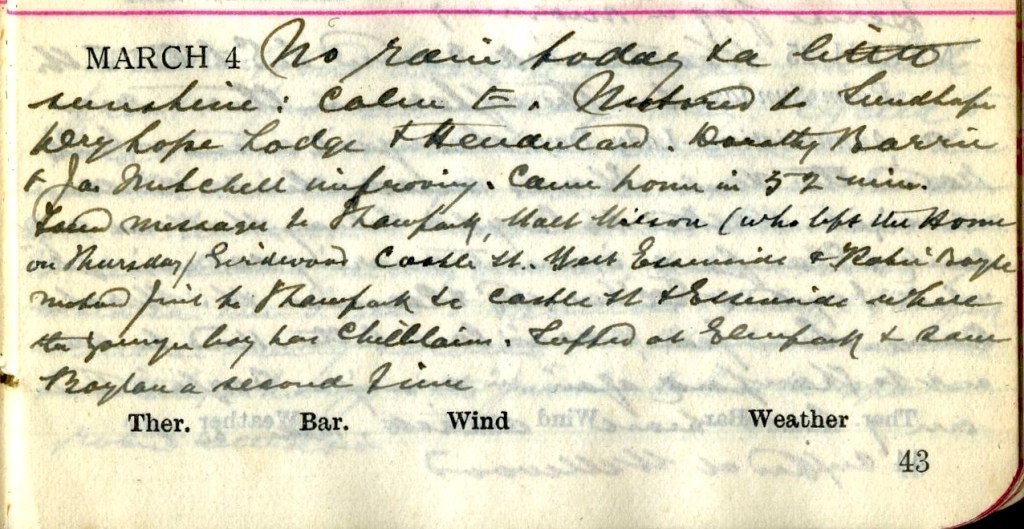 MARCH 4 No rain today & a little
sunshine: calm E. Motored to Sundhope
Dryhope Lodge & Henderland. Dorothy Barrie
& Jas Mitchell improving. Came home in 52 min.
Found messages to Thawpark, Walt Wilson (who left the Home
on Thursday) Girdwood Castle St. West Essenside &
Motored first to Thawpark to Castle St & Essenside where
the younger boy has Chilblains. Tufted at Elmpark & saw
a second time
Ther. Bar. Wind Weather
43